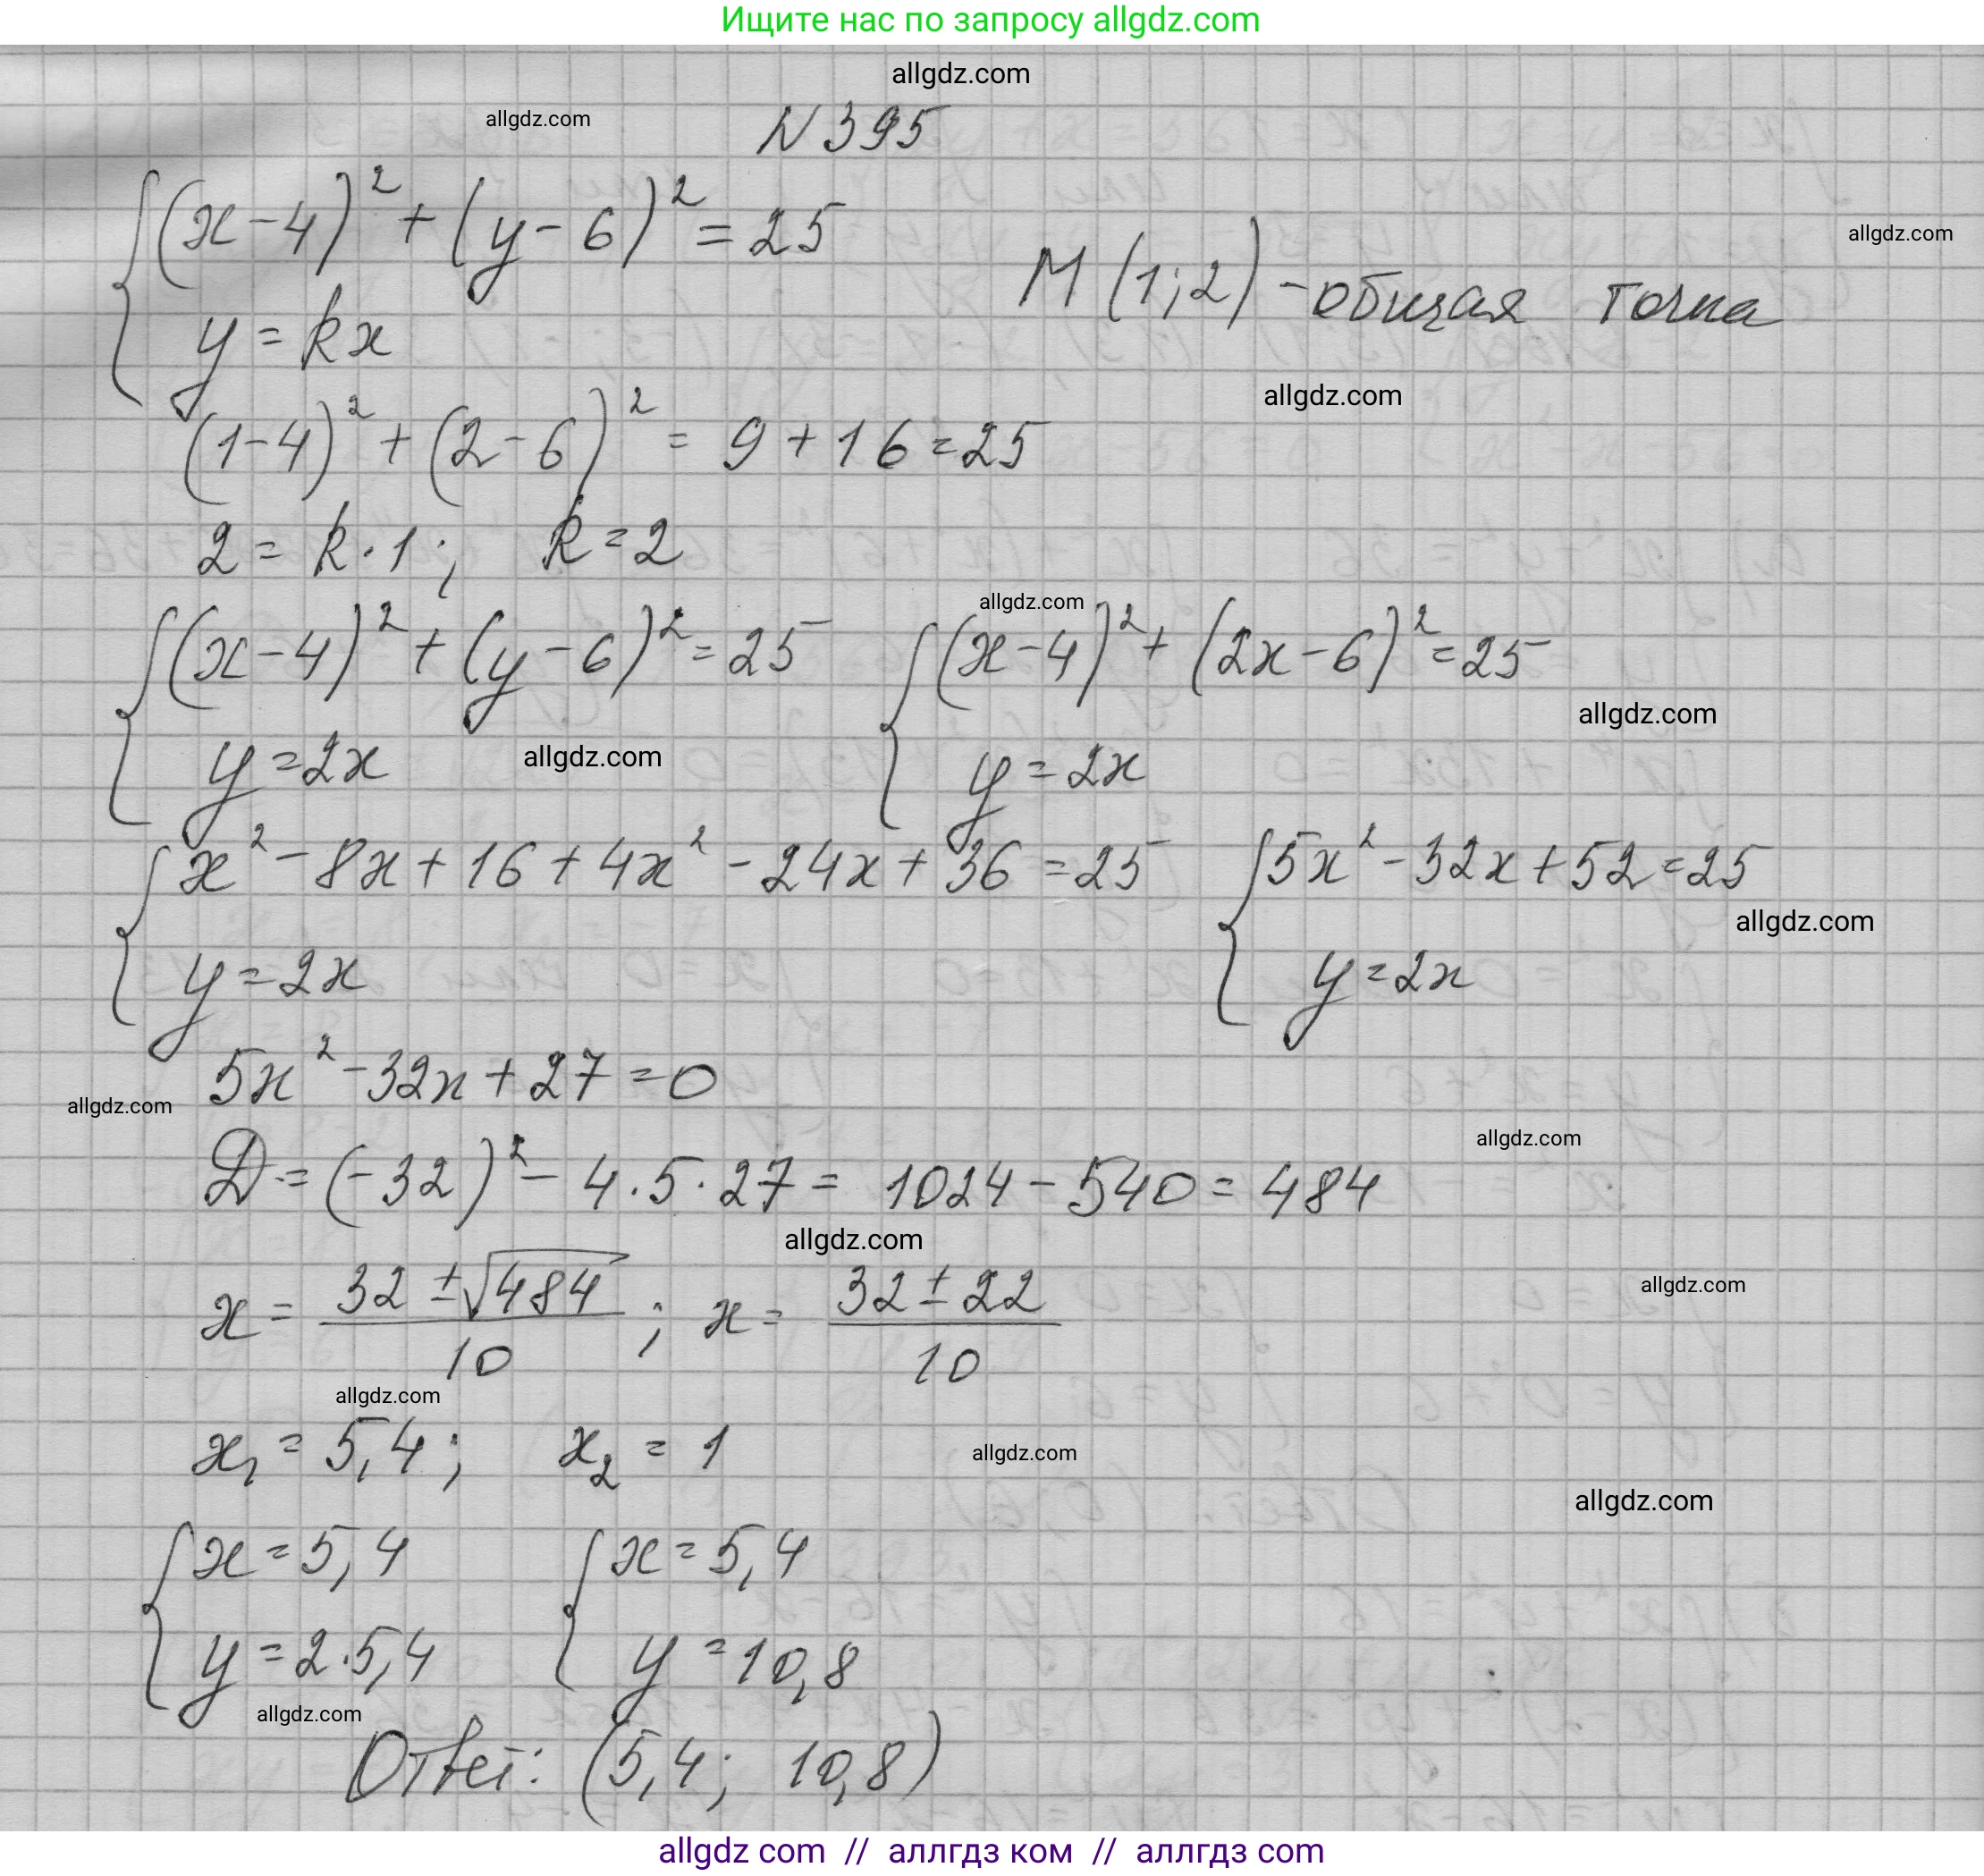 Ищите нас по запросу allgdz.com
allgdz.com
allgdz.com
N 395
(x-4)² + (y-6)² = 25
allgdz.com
M (1; 2) - общая точка
y = kx
allgdz.com
(1-4)² + (2-6)² = 9 + 16 = 25
2 = k · 1; k = 2
allgdz.com
(x-4)² + (y-6)² = 25 (x-4)² + (2x-6)² = 25
allgdz.com
y = 2x allgdz.com y = 2x
x² - 8x + 16 + 4x² - 24x + 36 = 25 5x² - 32x + 52 = 25
allgdz.com
y = 2x y = 2x
5x² - 32x + 27 = 0
allgdz.com
allgdz.com
D = (-32)² - 4 · 5 · 27 = 1024 - 540 = 484
allgdz.com
allgdz.com
x = (32 ± √484)/10; x = (32 ± 22)/10
allgdz.com
x₁ = 5,4; x₂ = 1
allgdz.com
allgdz.com
x = 5,4 x = 5,4
y = 2 · 5,4 y = 10,8
allgdz.com
Ответ: (5,4; 10,8)
allgdz com // аллгдз ком // аллгдз com